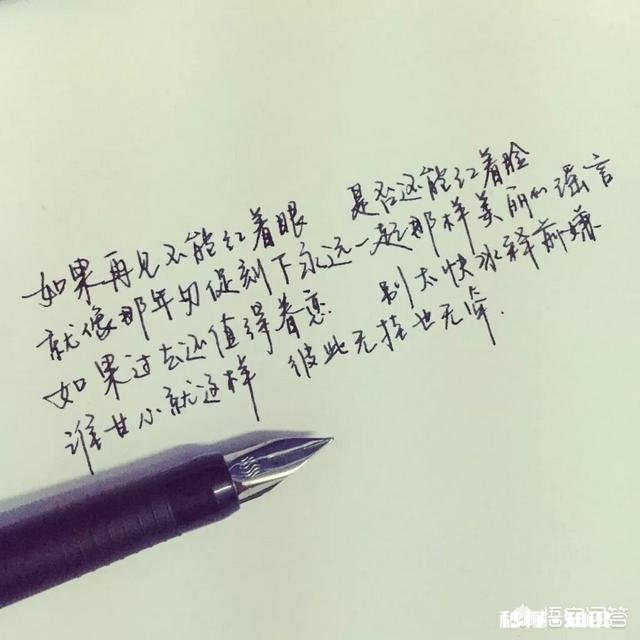 如果再见不能红着眼 是否还能红着脸
就像那年匆促刻下永远一起那样美丽的谣言
如果过去还值得眷恋 别太快冰释前嫌
谁甘心就这样 彼此无挂也无牵.
悟空问答
秒懂知识